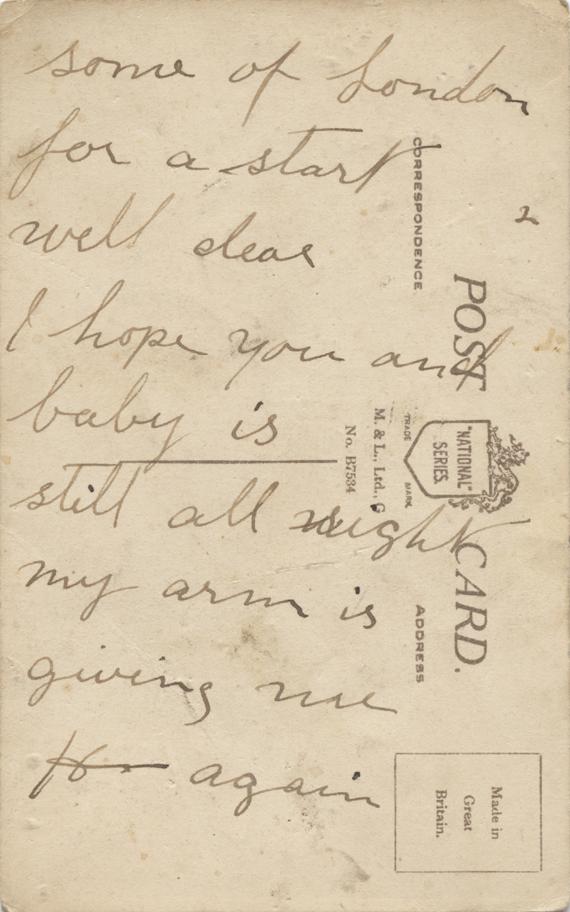 some of London
for a start
well dear
I hope you and
baby is
still all right
my arm is
giving me
again
2
CORRESPONDENCE
POST CARD.
"NATIONAL"
SERIES.
TRADE MARK
M. & L., Ltd., G
No. B7534
ADDRESS
Made in
Great
Britain.